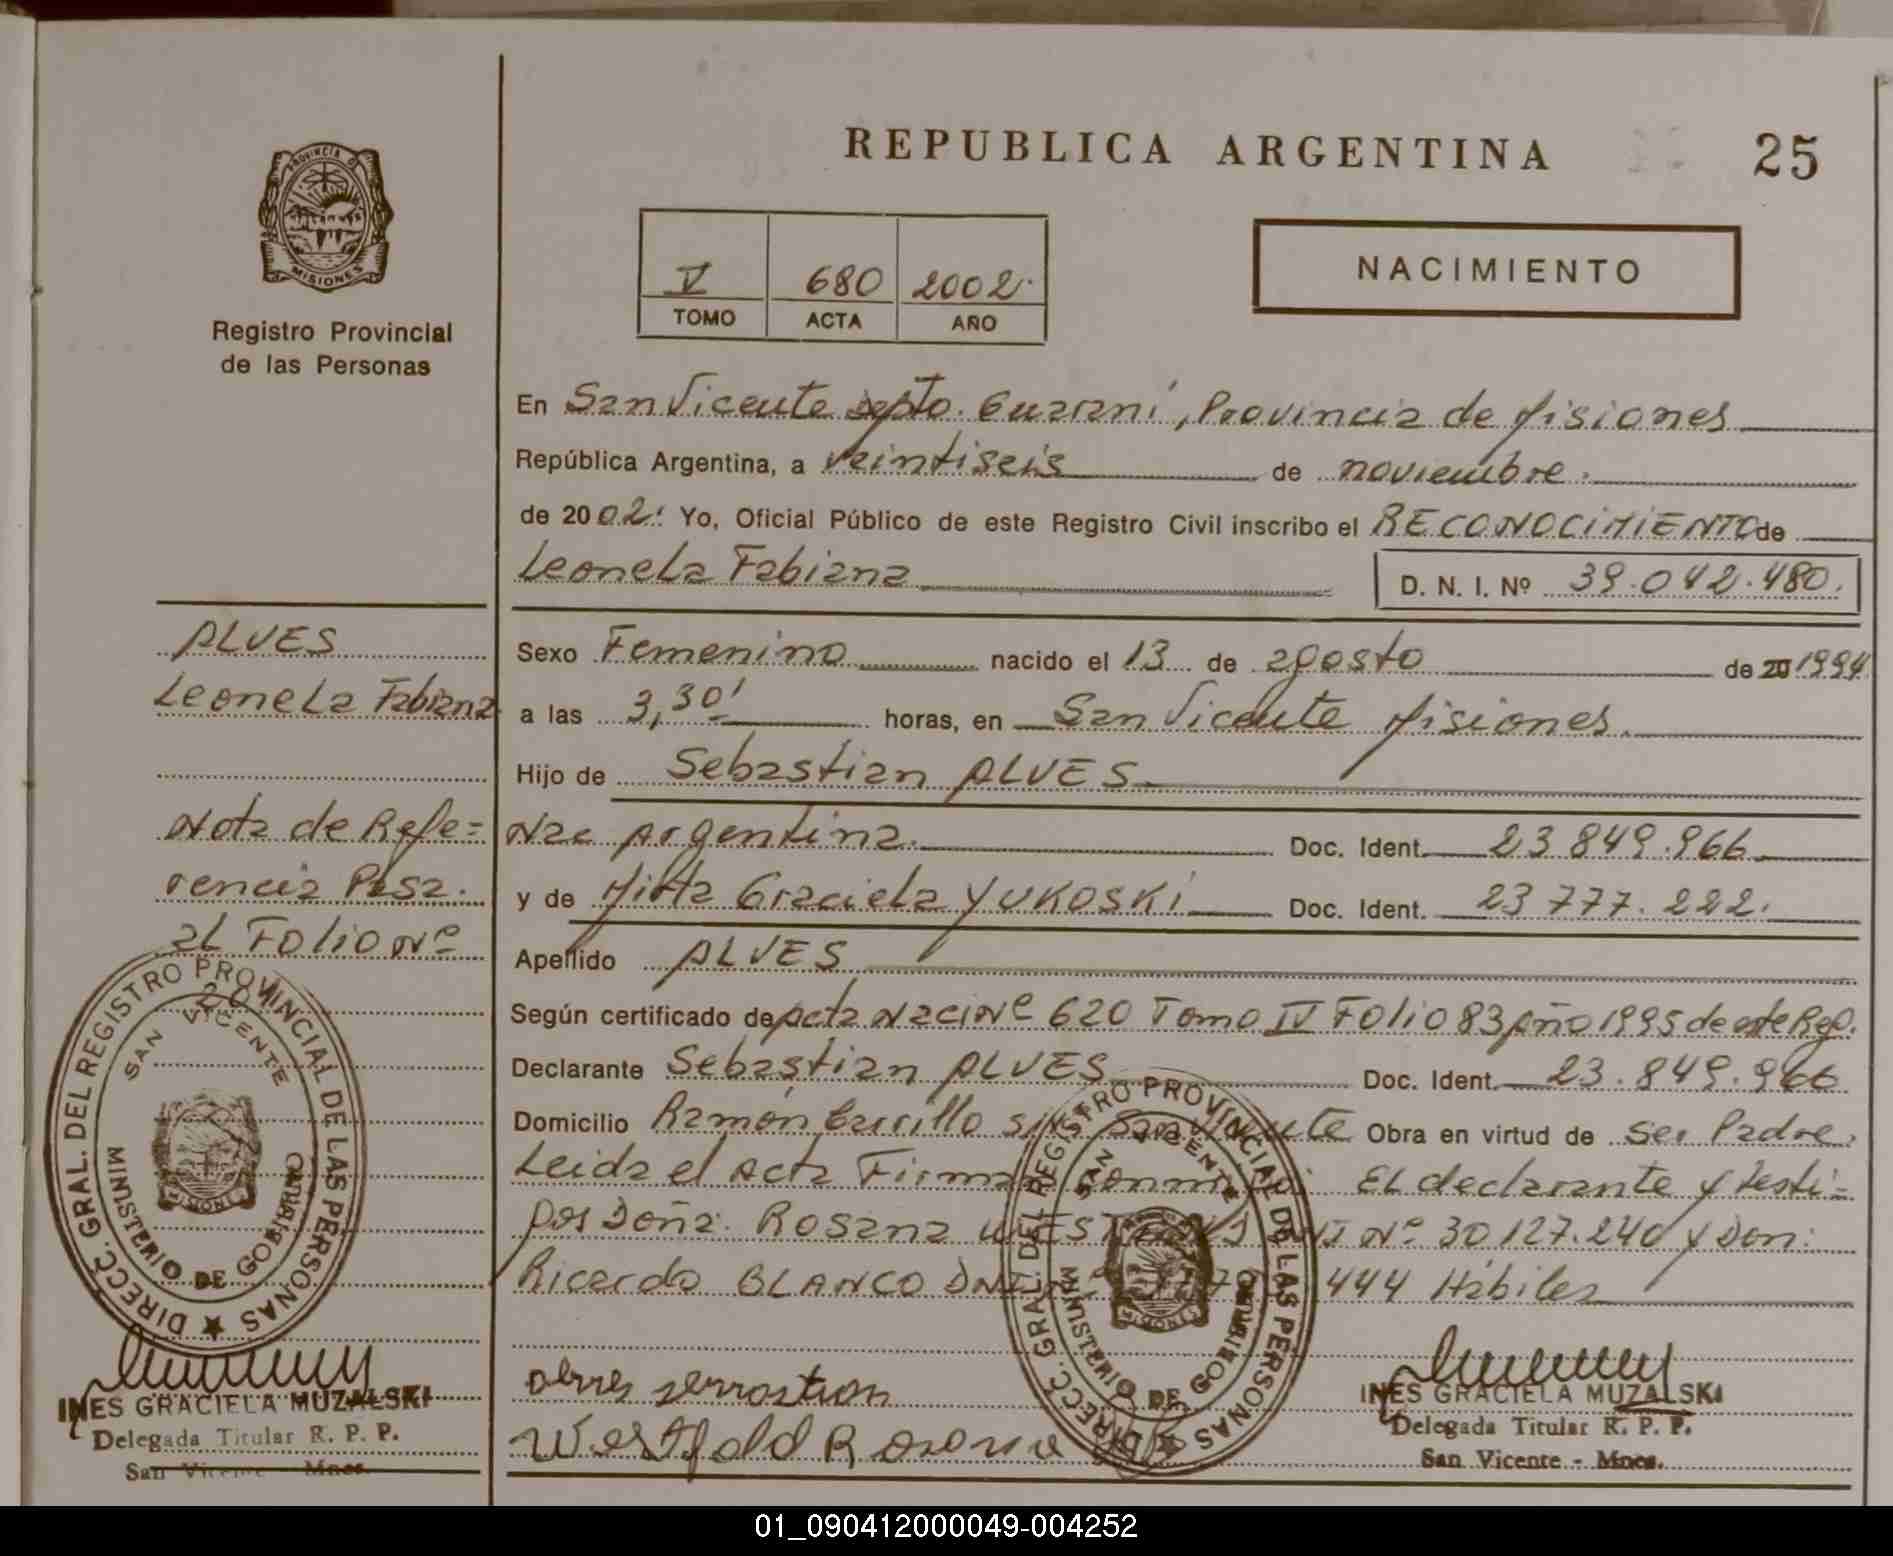 REPUBLICA ARGENTINA
25
PROVINCIA D
MISIONES
Registro Provincial
de las Personas
V 680 2002.
TOMO ACTA AÑO
NACIMIENTO
En San Vicente depto. Guaraní, Provincia de Misiones
República Argentina, a veintiseis de noviembre.
de 2002. Yo, Oficial Público de este Registro Civil inscribo el RECONOCIMIENTO de
Leonela Fabiana D. N. I. Nº 39.042.480.
ALVES
Leonela Fabiana
Nota de Refe=
rencia Pasa.
al Folio Nº
201
Sexo Femenino nacido el 13 de agosto de 20 1994
a las 3,30' horas, en San Vicente Misiones.
Hijo de Sebastian ALVES
Nac Argentina. Doc. Ident. 23 849.966
y de Mirta Graciela YUKOSKI Doc. Ident. 23 777.222.
Apellido ALVES
Según certificado de Acta Naci Nº 620 Tomo IV Folio 83 Año 1995 de este Reg.
Declarante Sebastian ALVES Doc. Ident. 23.849.966
Domicilio Ramón Carrillo S/N San Vicente Obra en virtud de Ser Padre.
Leida el Acta Firma El declarante y testi=
gos Doña: Rosana Nº 30 127.240 y Don:
Ricardo BLANCO DNI 444 Hábiles
alves serrastian
Westfald Rosana
DIRECC. GRAL. DEL REGISTRO PROVINCIAL DE LAS PERSONAS
SAN VICENTE
MISIONES
MINISTERIO DE GOBIERNO
INES GRACIELA MUZALSKI
Delegada Titular R. P. P.
San Vicente - Mnes.
DIRECC. GRAL. DEL REGISTRO PROVINCIAL DE LAS PERSONAS
SAN VICENTE
MISIONES
MINISTERIO DE GOBIERNO
INES GRACIELA MUZALSKI
Delegada Titular R. P. P.
San Vicente - Mnes.
01_090412000049-004252